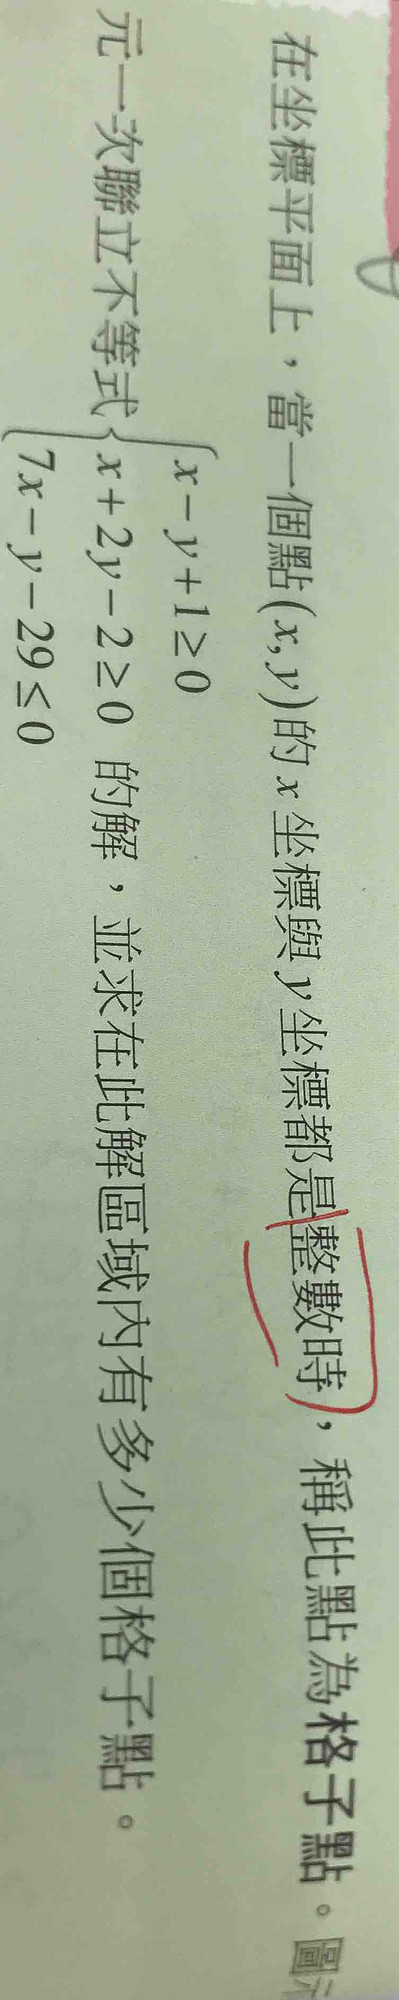 在坐標平面上，當一個點(x,y)的x坐標與y坐標都是整數時，稱此點為格子點。圖示
元一次聯立不等式{x-y+1≥0
x+2y-2≥0 的解，並求在此解區域內有多少個格子點。
7x-y-29≤0